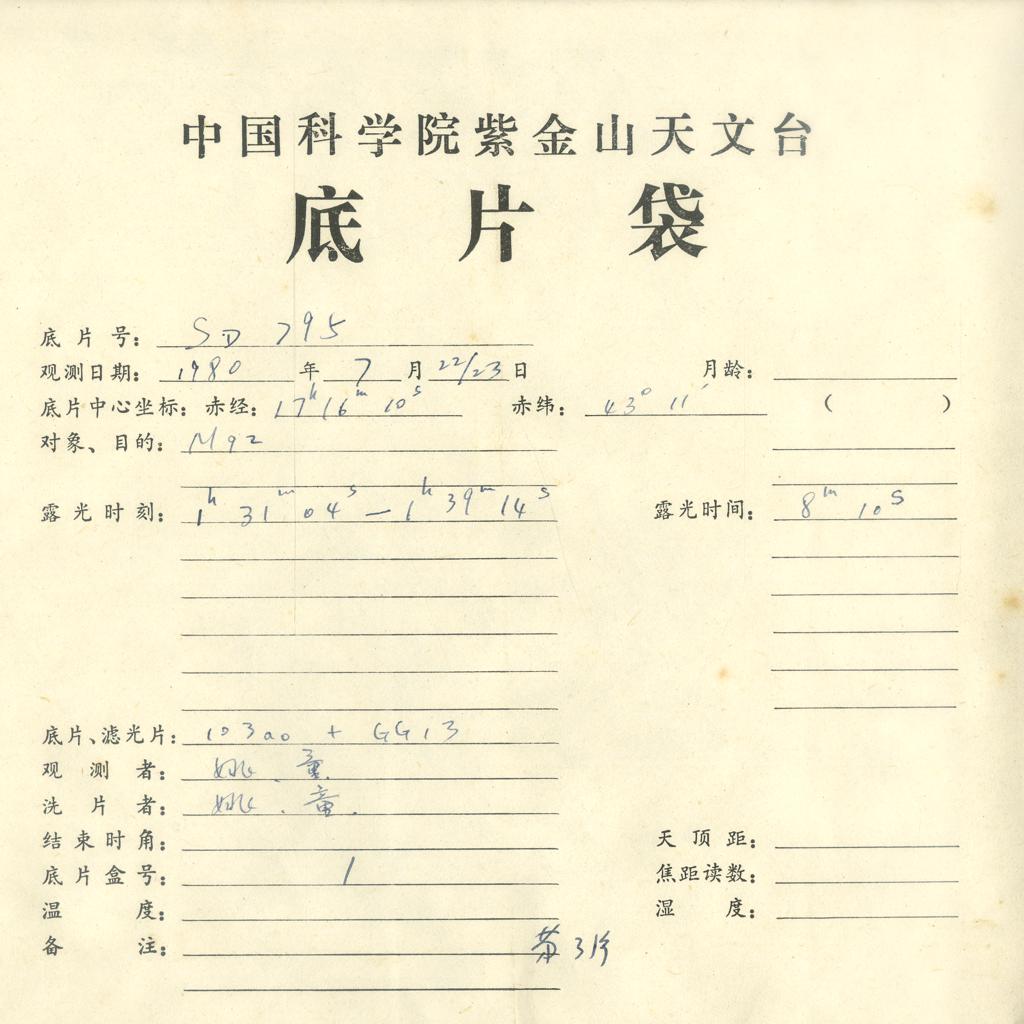 中国科学院紫金山天文台
底片袋
底片号： SD 795
观测日期： 1980 年 7 月 22/23 日 月龄：
底片中心坐标：赤经： 17h 16m 10s 赤纬： 43° 11′ （ ）
对象、目的： M92
露光时刻： 1h 31m 04s — 1h 39m 14s 露光时间： 8m 10s
底片、滤光片： 103aO + GG13
观测者： 姚、童
洗片者： 姚、童.
结束时角： 天顶距：
底片盒号： 1 焦距读数：
温度： 湿度：
备注：